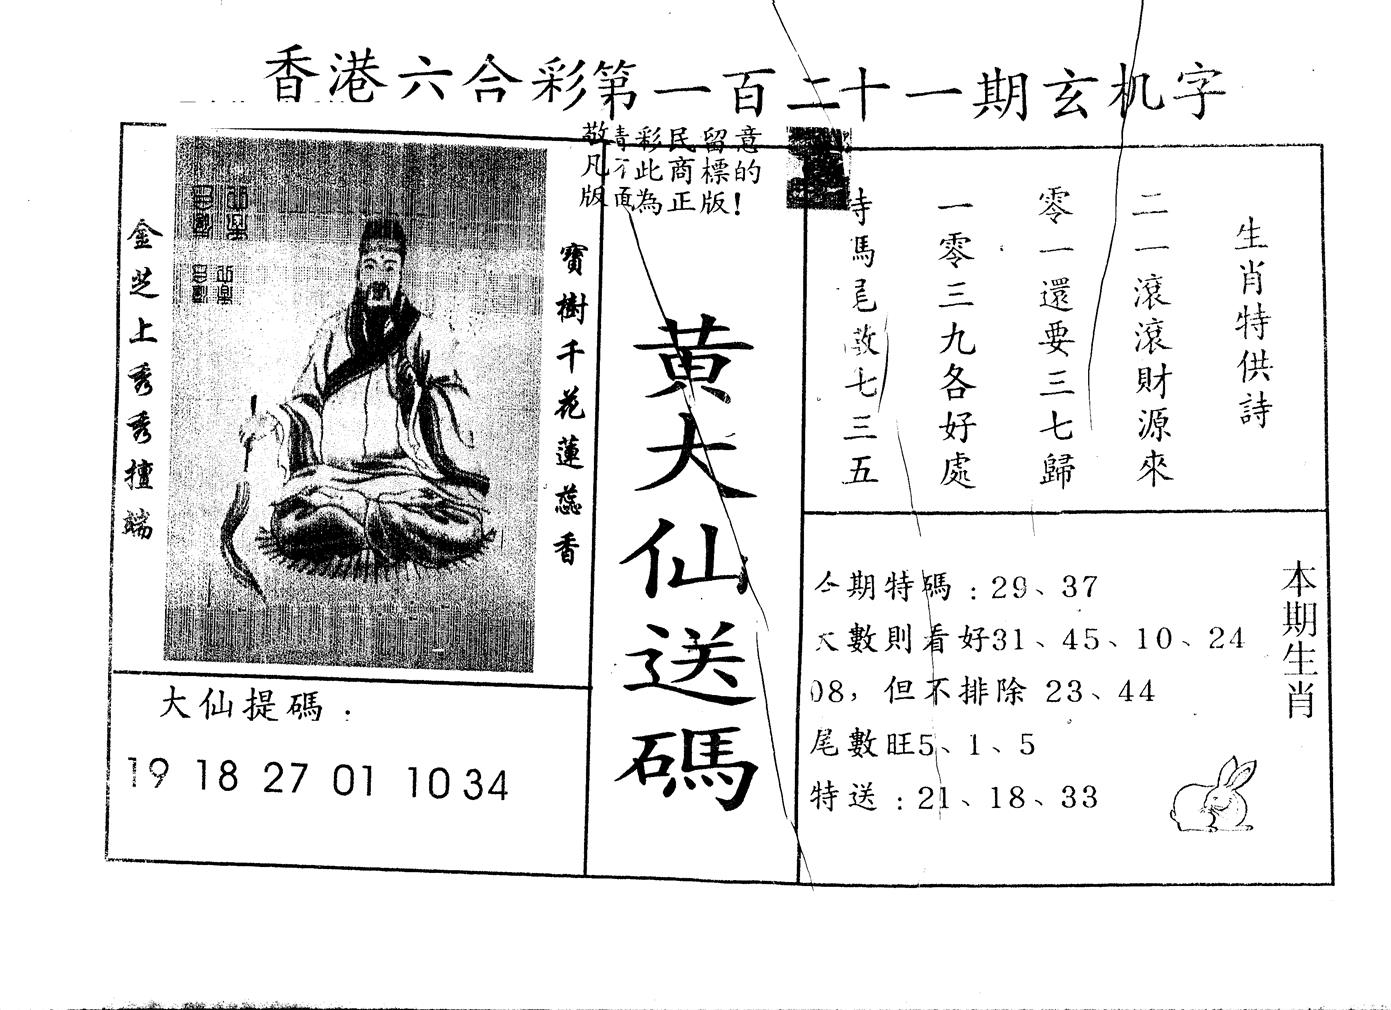 香港六合彩第一百二十一期玄机字
敬請彩民留意
凡不此商標的
版面為正版!
寶樹千花蓮蕊香
金芝上秀秀擅端
黄大仙送碼
生肖特供詩
二一滾滾財源來
零一還要三七歸
一零三九各好處
馬尾敬七三五
大仙提碼:
19 18 27 01 10 34
本期生肖
今期特碼:29、37
大數則看好31、45、10、24
08,但不排除 23、44
尾數旺5、1、5
特送:21、18、33